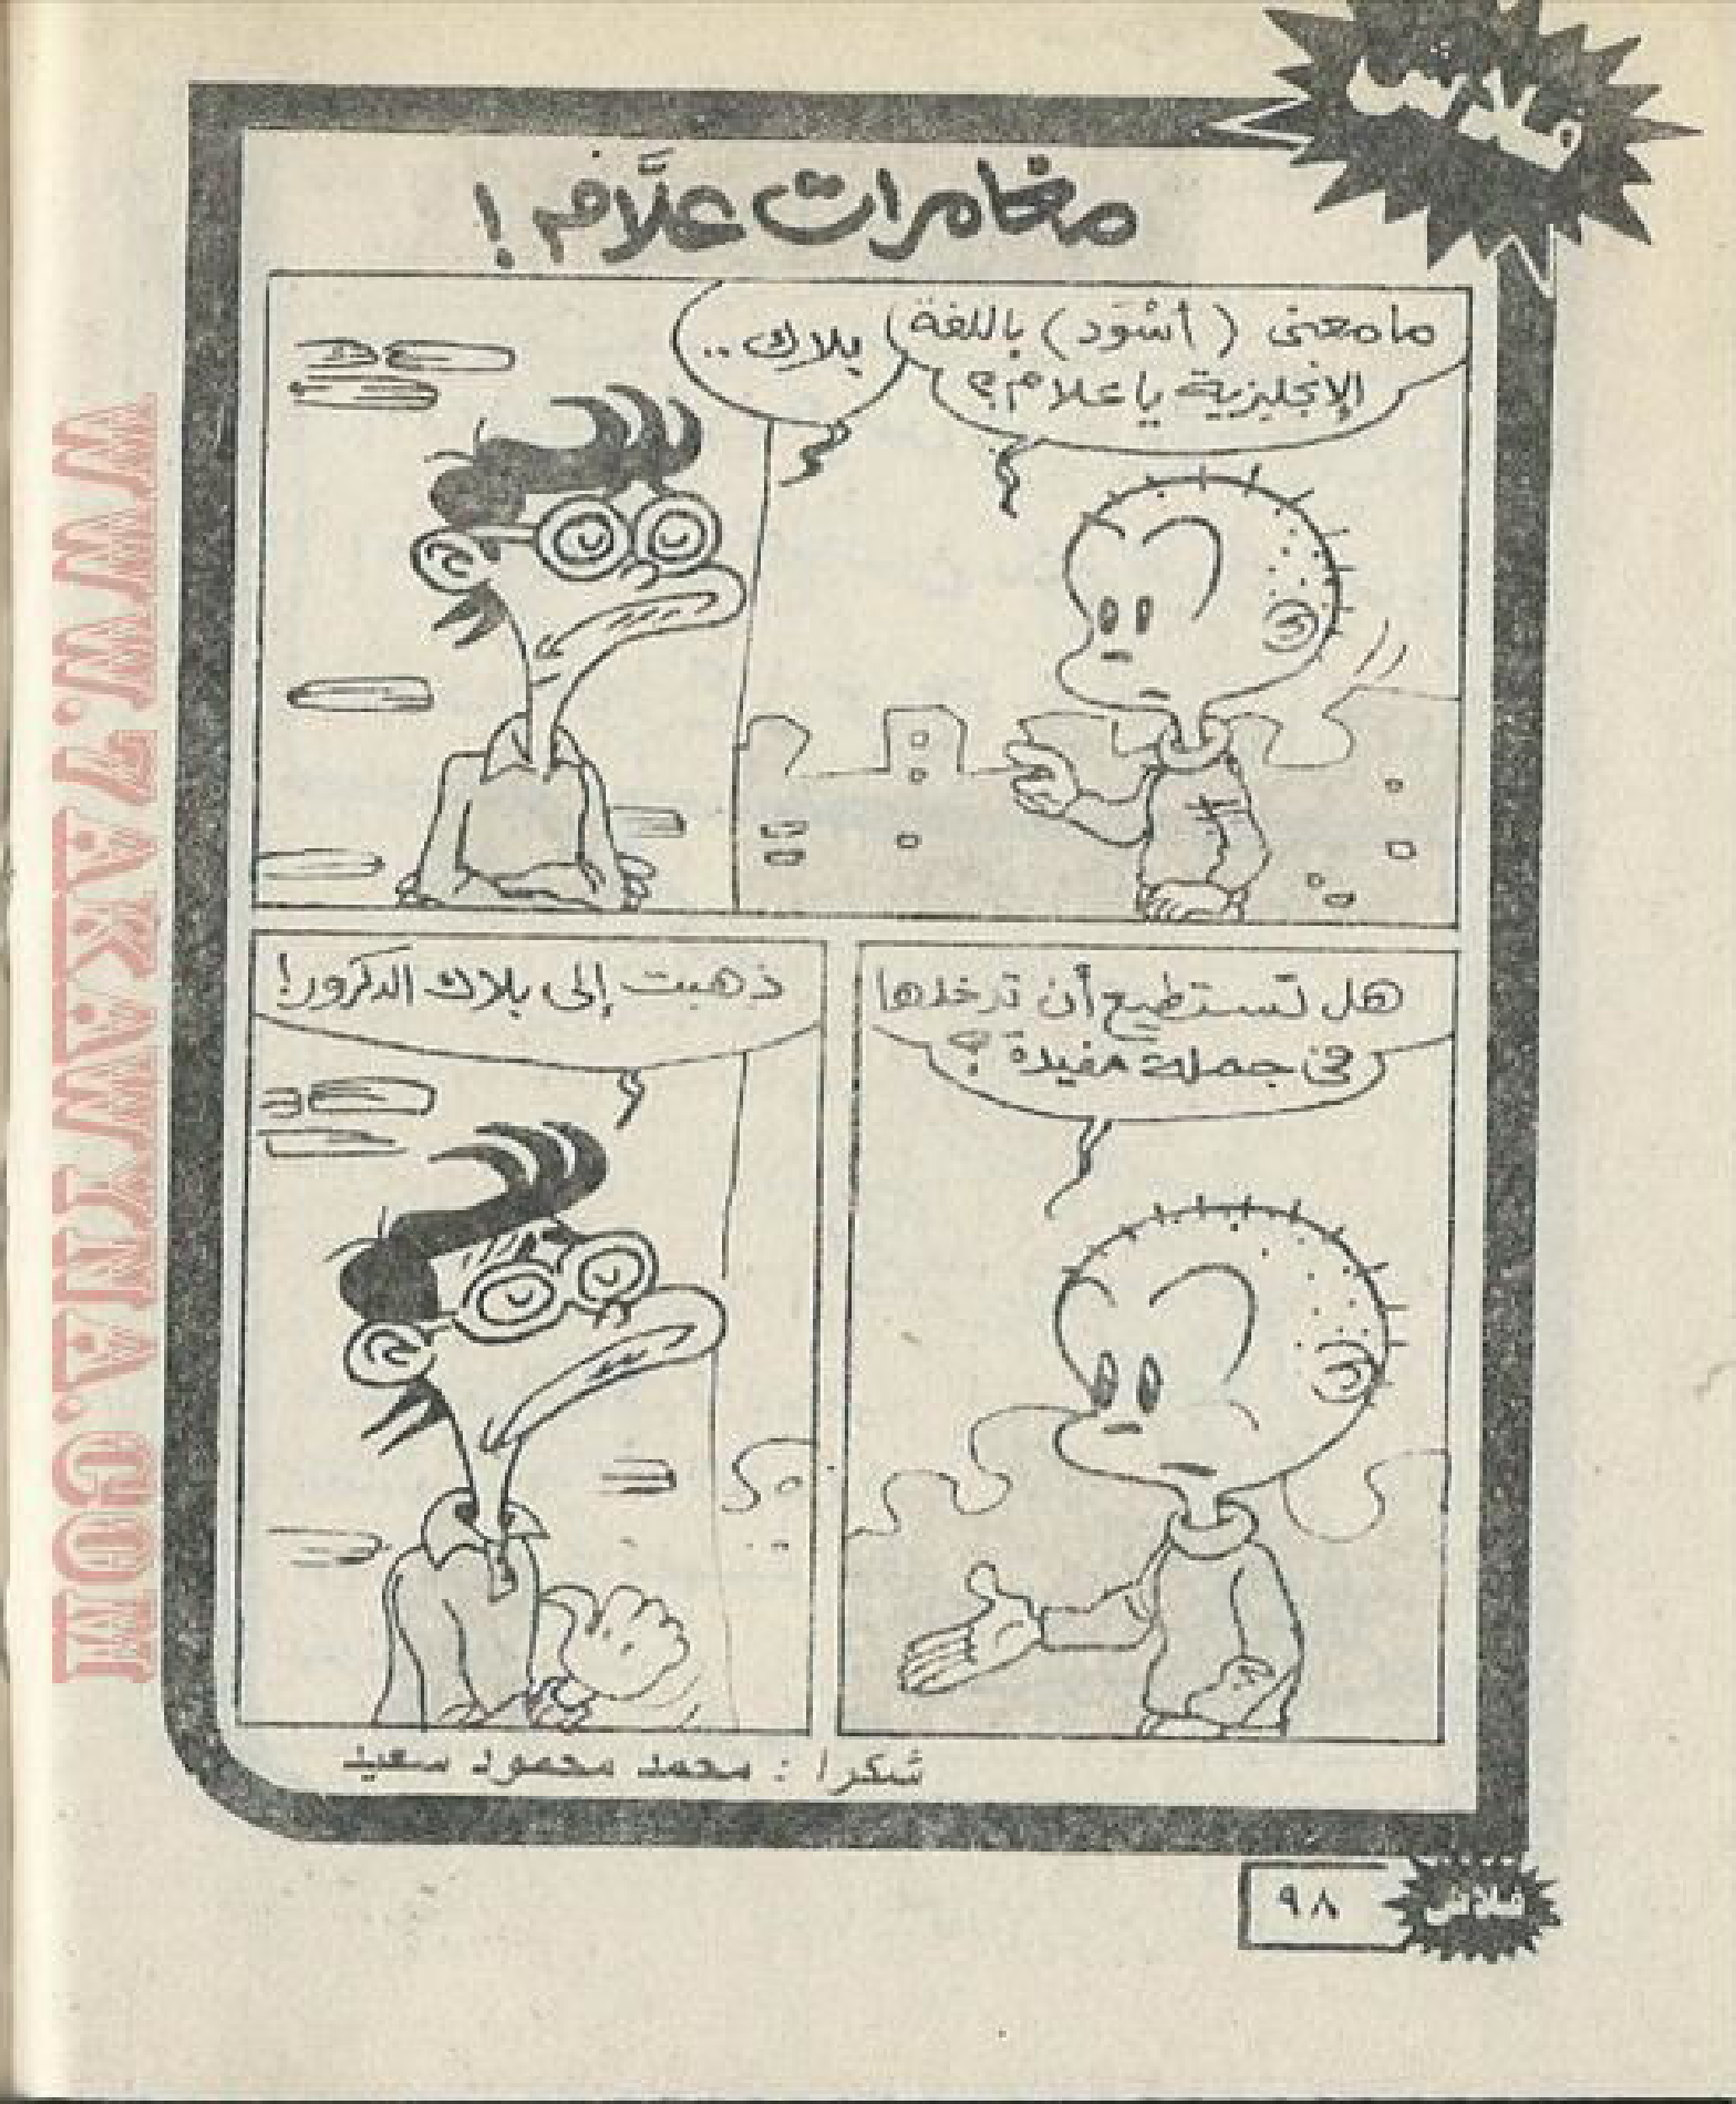 فلاش
مغامرات علَّام !
ما معنى ( أسْوَد ) باللغة
الإنجليزية ياعلام ؟
بلاك ..
هل تستطيع أن تدخلها
فى جملة مفيدة ؟
ذهبت إلى بلاك الدكرور !
شكرا : محمد محمود سعيد
٩٨
فلاش
WWW.7AKAWINA.COM